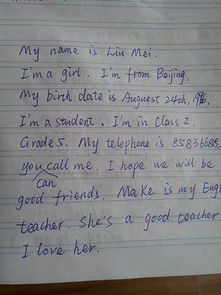 My name is Liu Mei.
I'm a girl. I'm from Beijing.
My birth date is Auguest 24th, 1996,
I'm a student. I'm in Class 2,
Grade 5. My telephone is
you can call me. I hope we will be
good friends. Make is my Eng
teacher. She's a good teacher
I love her.